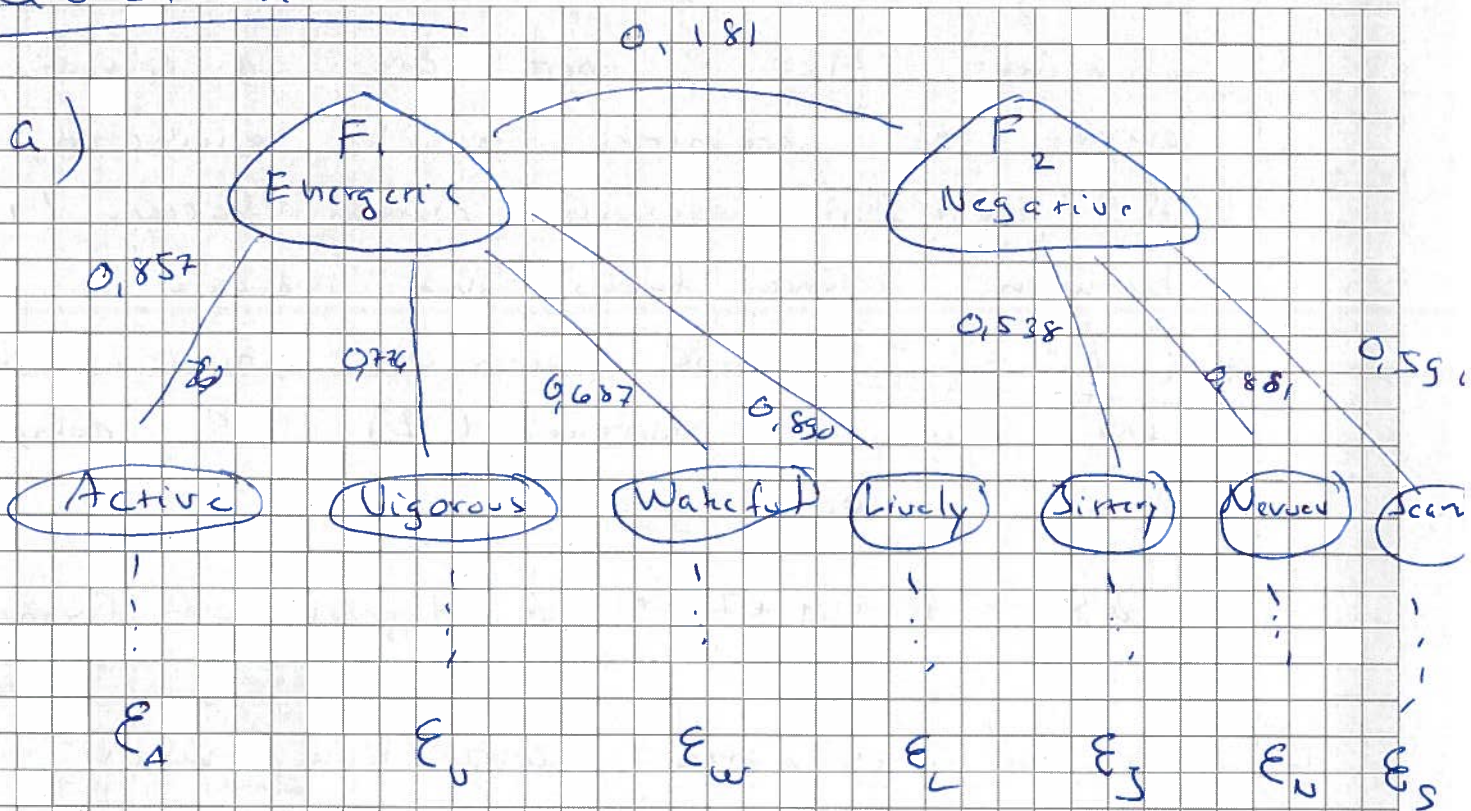 0,181
a)
F1
F2
Energeric
Negative
0,857
0,776
0,687
0,890
0,538
0,881
0,59
Active
Vigorous
Wakeful
Lively
Jittery
Scar
εA
εV
εW
εL
εJ
εN
εS